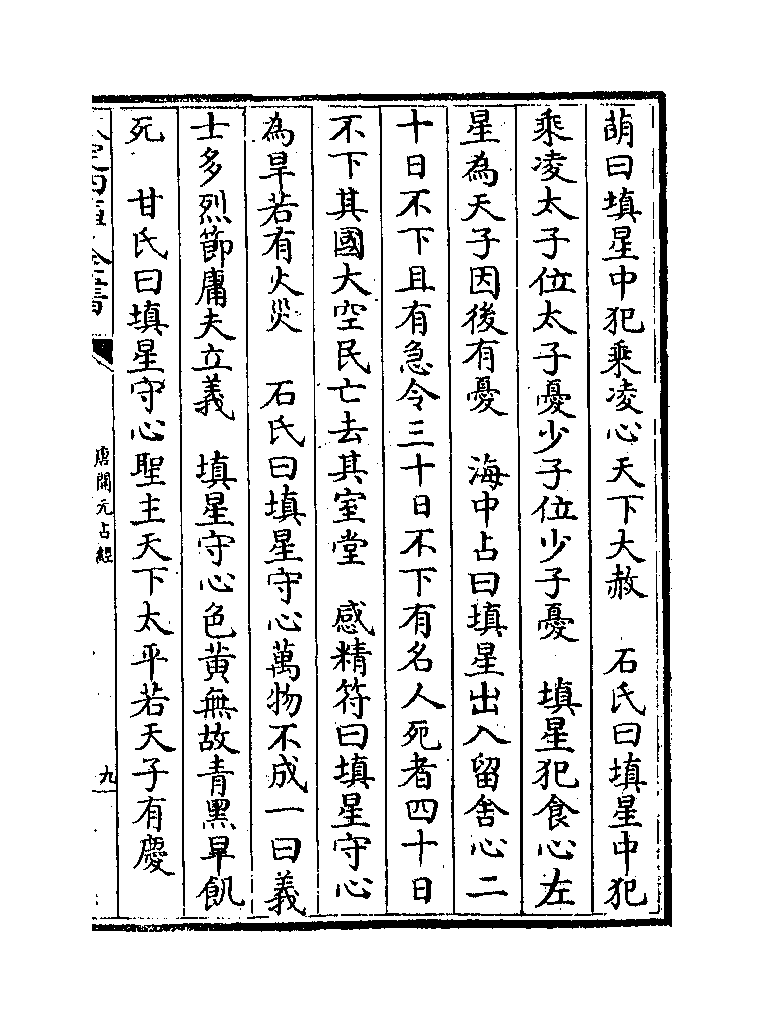 萌曰填星中犯乘凌心天下大赦　石氏曰填星中犯
乘凌太子位太子憂少子位少子憂　填星犯食心左
星為天子因後有憂　海中占曰填星出入留舍心二
十日不下且有急令三十日不下有名人死者四十日
不下其國大空民亡去其室堂　感精符曰填星守心
為旱若有火災　石氏曰填星守心萬物不成一曰義
士多烈節庸夫立義　填星守心色黃無故青黑旱飢
死　甘氏曰填星守心聖主天下太平若天子有慶
唐開元占經
九